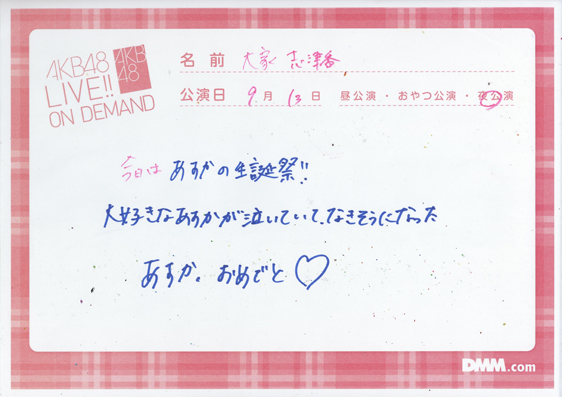 AKB48
LIVE!!
ON DEMAND
AKB
48
名前 大家 志津香
公演日 9月13日 昼公演・おやつ公演・夜公演
今日は あすかの生誕祭!!
大好きなあすかが泣いていて、なきそうになった
あすか、おめでと♡
DMM.com